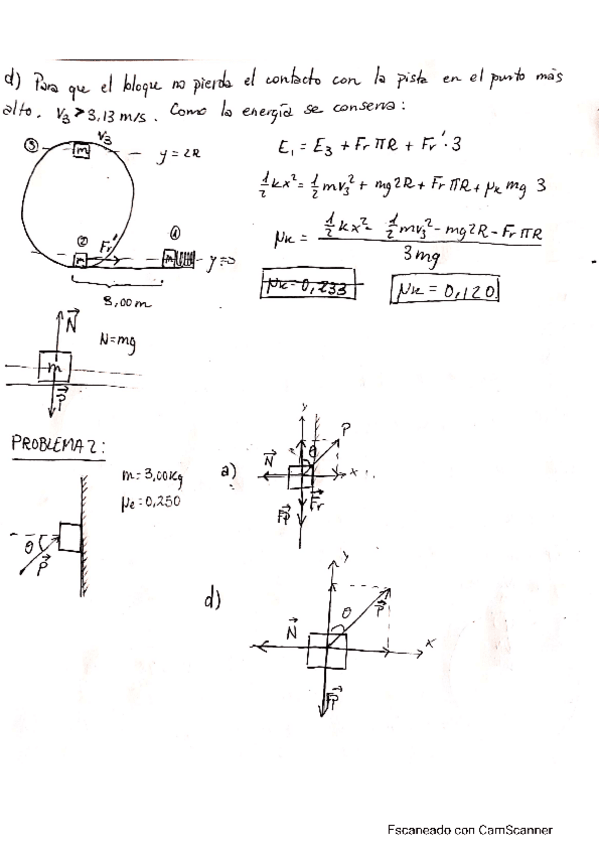 d) Para que el bloque no pierda el contacto con la pista en el punto más
alto. V₃ > 3,13 m/s. Como la energía se conserva:
③ V₃
m y = 2R
E₁ = E₃ + Fr πR + Fr'·3
½kx² = ½mv₃² + mg2R + Fr πR + μₖ mg 3
② Fr' ①
m m y=0
3,00m
μₖ = (½kx² - ½mv₃² - mg2R - Fr πR) / 3mg
μₖ = 0,233 μₖ = 0,120
N
N=mg
m
P
PROBLEMA 2:
m = 3,00kg
μe = 0,250
θ P
a)
y
θ P
N x
Fr
d)
y
θ P
N x
Escaneado con CamScanner